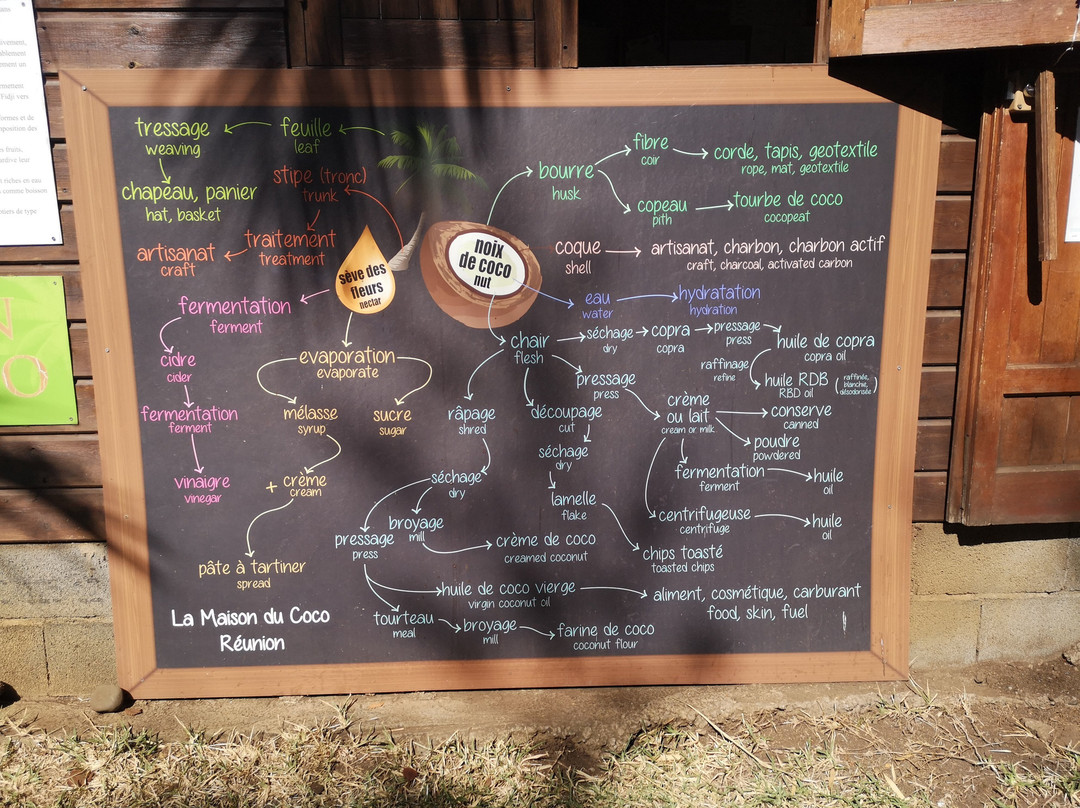 tressage
weaving
feuille
leaf
chapeau, panier
hat, basket
stipe (tronc)
trunk
traitement
treatment
artisanat
craft
sève des
fleurs
nectar
noix
de coco
nut
bourre
husk
fibre
coir
corde, tapis, geotextile
rope, mat, geotextile
copeau
pith
tourbe de coco
cocopeat
coque
shell
artisanat, charbon, charbon actif
craft, charcoal, activated carbon
eau
water
hydratation
hydration
fermentation
ferment
cidre
cider
fermentation
ferment
vinaigre
vinegar
evaporation
evaporate
mélasse
syrup
sucre
sugar
+ crème
cream
pâte à tartiner
spread
chair
flesh
séchage
dry
copra
copra
pressage
press
huile de copra
copra oil
raffinage
refine
huile RDB
RBD oil
(raffinée,
blanchie,
désodorisée)
pressage
press
crème
ou lait
cream or milk
conserve
canned
poudre
powdered
fermentation
ferment
huile
oil
centrifugeuse
centrifuge
huile
oil
râpage
shred
découpage
cut
séchage
dry
lamelle
flake
chips toasté
toasted chips
séchage
dry
broyage
mill
crème de coco
creamed coconut
pressage
press
huile de coco vierge
virgin coconut oil
aliment, cosmétique, carburant
food, skin, fuel
tourteau
meal
broyage
mill
farine de coco
coconut flour
La Maison du Coco
Réunion